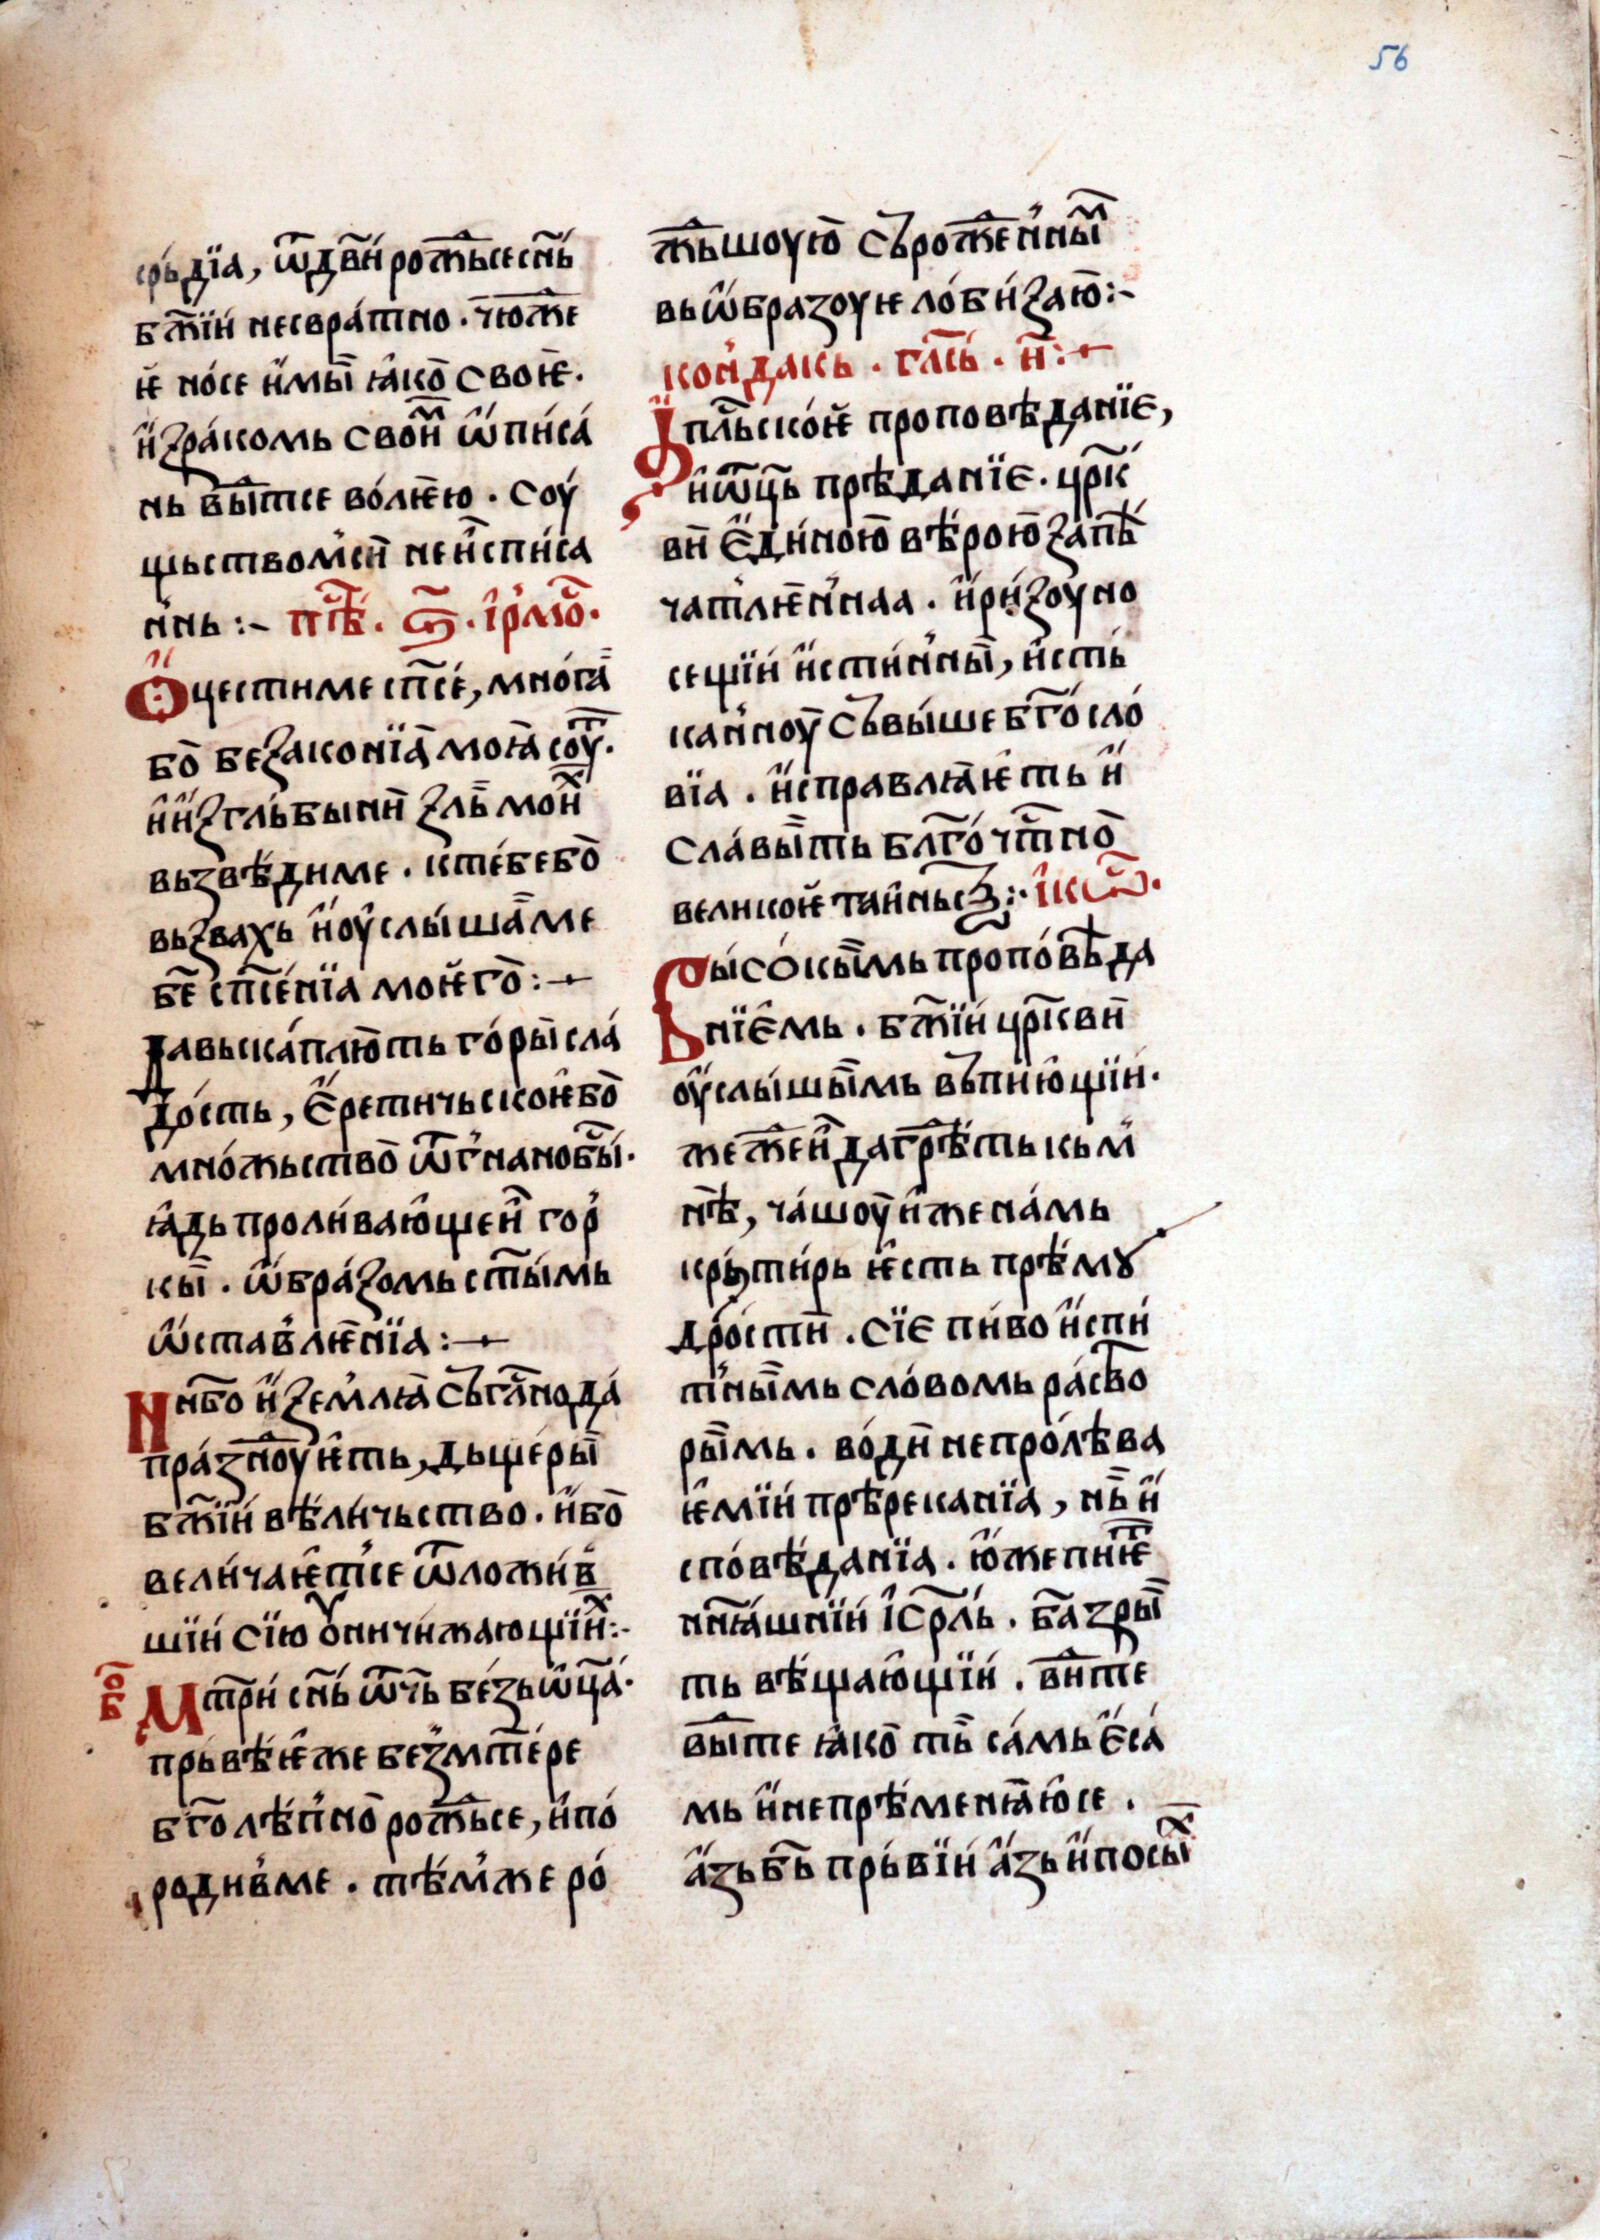 56
срь́дїа, ѿдв҃и́ рож҃ьсе сн҃ь
бж҃їи несвра́тно. чюже
ѥ но́се и҆мы ꙗ҆ко̀ своѥ̀.
и҆ зра́комь свои̑м ѡ҆писа́
нь бы̑тсе во́лѥю. соу́
щьство́мси не и҆спи́са
ннь :~ пѣ̑. ѕ҃. і҆рмо̑.
Ѻ҆цести ме сп҃се́, мно́га
бо̀ безакѡнїа̀ моꙗ̀ соу̑т.
и҆ и҆згльбыни ꙁль мои̑х
вьзве́ди ме. кте́бе бо̀
вьзвахь и҆ оу҆слы́ша ме
бе҃ сп҃се́нїа моѥго̀ :~
Да вьска́плють го́ры сла́
дость, є҆ретичьскоѥ бо̀
мно́жьство̀ ѿгнано бы̑.
ꙗ҆дь проли́ваю҆щеи го́р
кы. ѡ҆бра́зомь ст҃ы́мь
ѡ҆ста́влѥнїа :~
Н нб҃о и҆ землꙗ̀ сьгла̑но да́
пра́зноуѥть, дьще́ры
бж҃їи вели́чьство. и҆бо̀
вели́чаѥ҆тсе ѿложи́в
шїи сїю ѹ҆ничи́жающїи̑х :~
бо̑
Мт҃ри сн҃ь ѿч҃ь бе́зь ѡ҆ц҃а́.
прь́вѣѥ҆же безмт҃е́ре
бг҃олѣ́пно̀ рож҃ьсе, и҆по́
родив́ме. тѣ́мже ро́
ж҃ьшоую̀ сьрожен́ны̑м
вь ѡ҆бразоу ѥ ло́бизаю̀ :~
кон́дакь. гла̑сь. и҃ :~
А҆пл҃ьско́ѥ проповѣданїе,
и҆ ѿц҃ь прѣданїе. цр҃к
ви є҆ди́ною̀ вѣ́рою̀ запѣ́
чатлѥн́наа. и҆ ри́зоу но
сещїи и҆сти́нны, и҆сть́
кан́ноу̀ сьвы́ше бг҃о́сло́
вїа. и҆справлꙗ̀ѥть и҆
сла́выть блг҃о́чт҃но̀
великоѥ таи҆ньст҃во :~ і҆ко̑с.
Высо́кымь пропо́вѣ̀да
нїе҆мь. бж҃їи цр҃кви
оу҆слы́шымь вьпию҆щїи.
же же́и да грѣ́ть кь м́
нѣ̀, ча́шоу̀ и҆же на́мь
крь́тирь ѥсть прѣ́мꙋ
дрости. сїе пи́во и҆спи́
т́нымь сло́вомь ра́ство
рымь. во́ди не про́лѣва
ѥ҆мїи прѣрека́нїа, нь и҆
спо́вѣ́данїа. ю҆же пиѥ̑т
нинꙗ́шнїи і҆ср҃ль́. ба҃ зры
ть вѣ́щаю҆щїи. ви̑те
ви̑те ꙗ҆ко̀ ть са́мь є҆са́
мь и҆ не прѣ́менꙗ̀ю҆се.
а҆зь бь̀ прь́вїи а҆зь и҆ по сы̑х